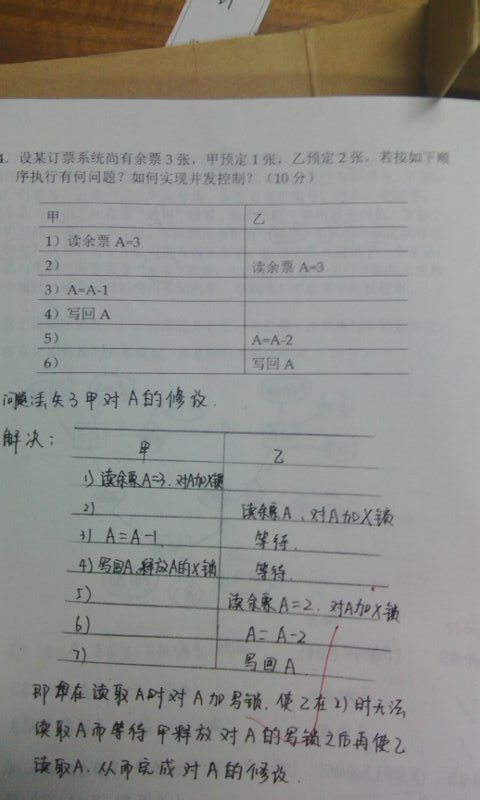 4. 设某订票系统尚有余票3张，甲预定1张，乙预定2张，若按如下顺
序执行有何问题？如何实现并发控制？（10分）
甲 乙
1）读余票 A=3
2） 读余票 A=3
3）A=A-1
4）写回 A
5） A=A-2
6） 写回 A
问题：丢失了甲对A的修改.
解决：
甲 乙
1) 读余票A=3. 对A加X锁
2) 读余票A、对A加X锁
3) A=A-1. 等待.
4) 写回A、释放A的X锁 等待.
5) 读余票A=2. 对A加X锁
6) A=A-2
7) 写回A.
即甲在读取A时对A加写锁，使乙在2)时无法
读取A而等待甲释放对A的写锁之后再使乙
读取A，从而完成对A的修改.